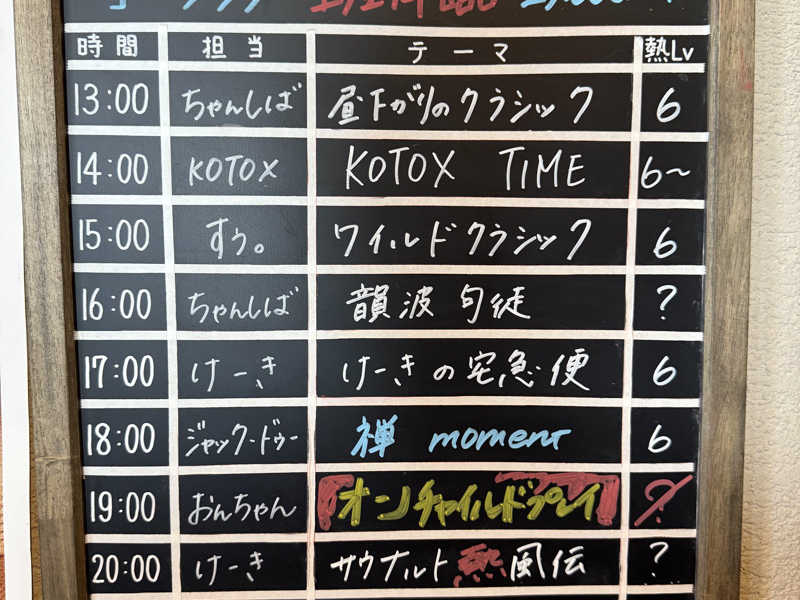 時間 担当 テーマ 熱Lv
13:00 ちゃんしば 昼下がりのクラシック 6
14:00 KOTOX KOTOX TIME 6〜
15:00 すぅ。 ワイルドクラシック 6
16:00 ちゃんしば 韻波句徒 ?
17:00 けーき けーきの宅急便 6
18:00 ジャック・ドゥー 禅 moment 6
19:00 おんちゃん 「オンチャイルドプレイ」 ?
20:00 けーき サウナルト熱風伝 ?